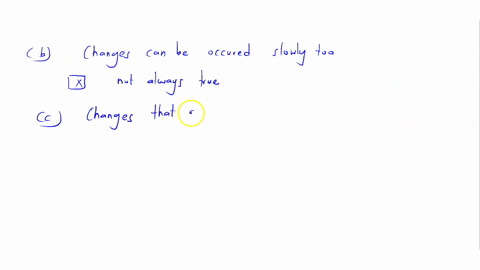 (b) Changes can be occured slowly too
x not always true
(c) Changes that